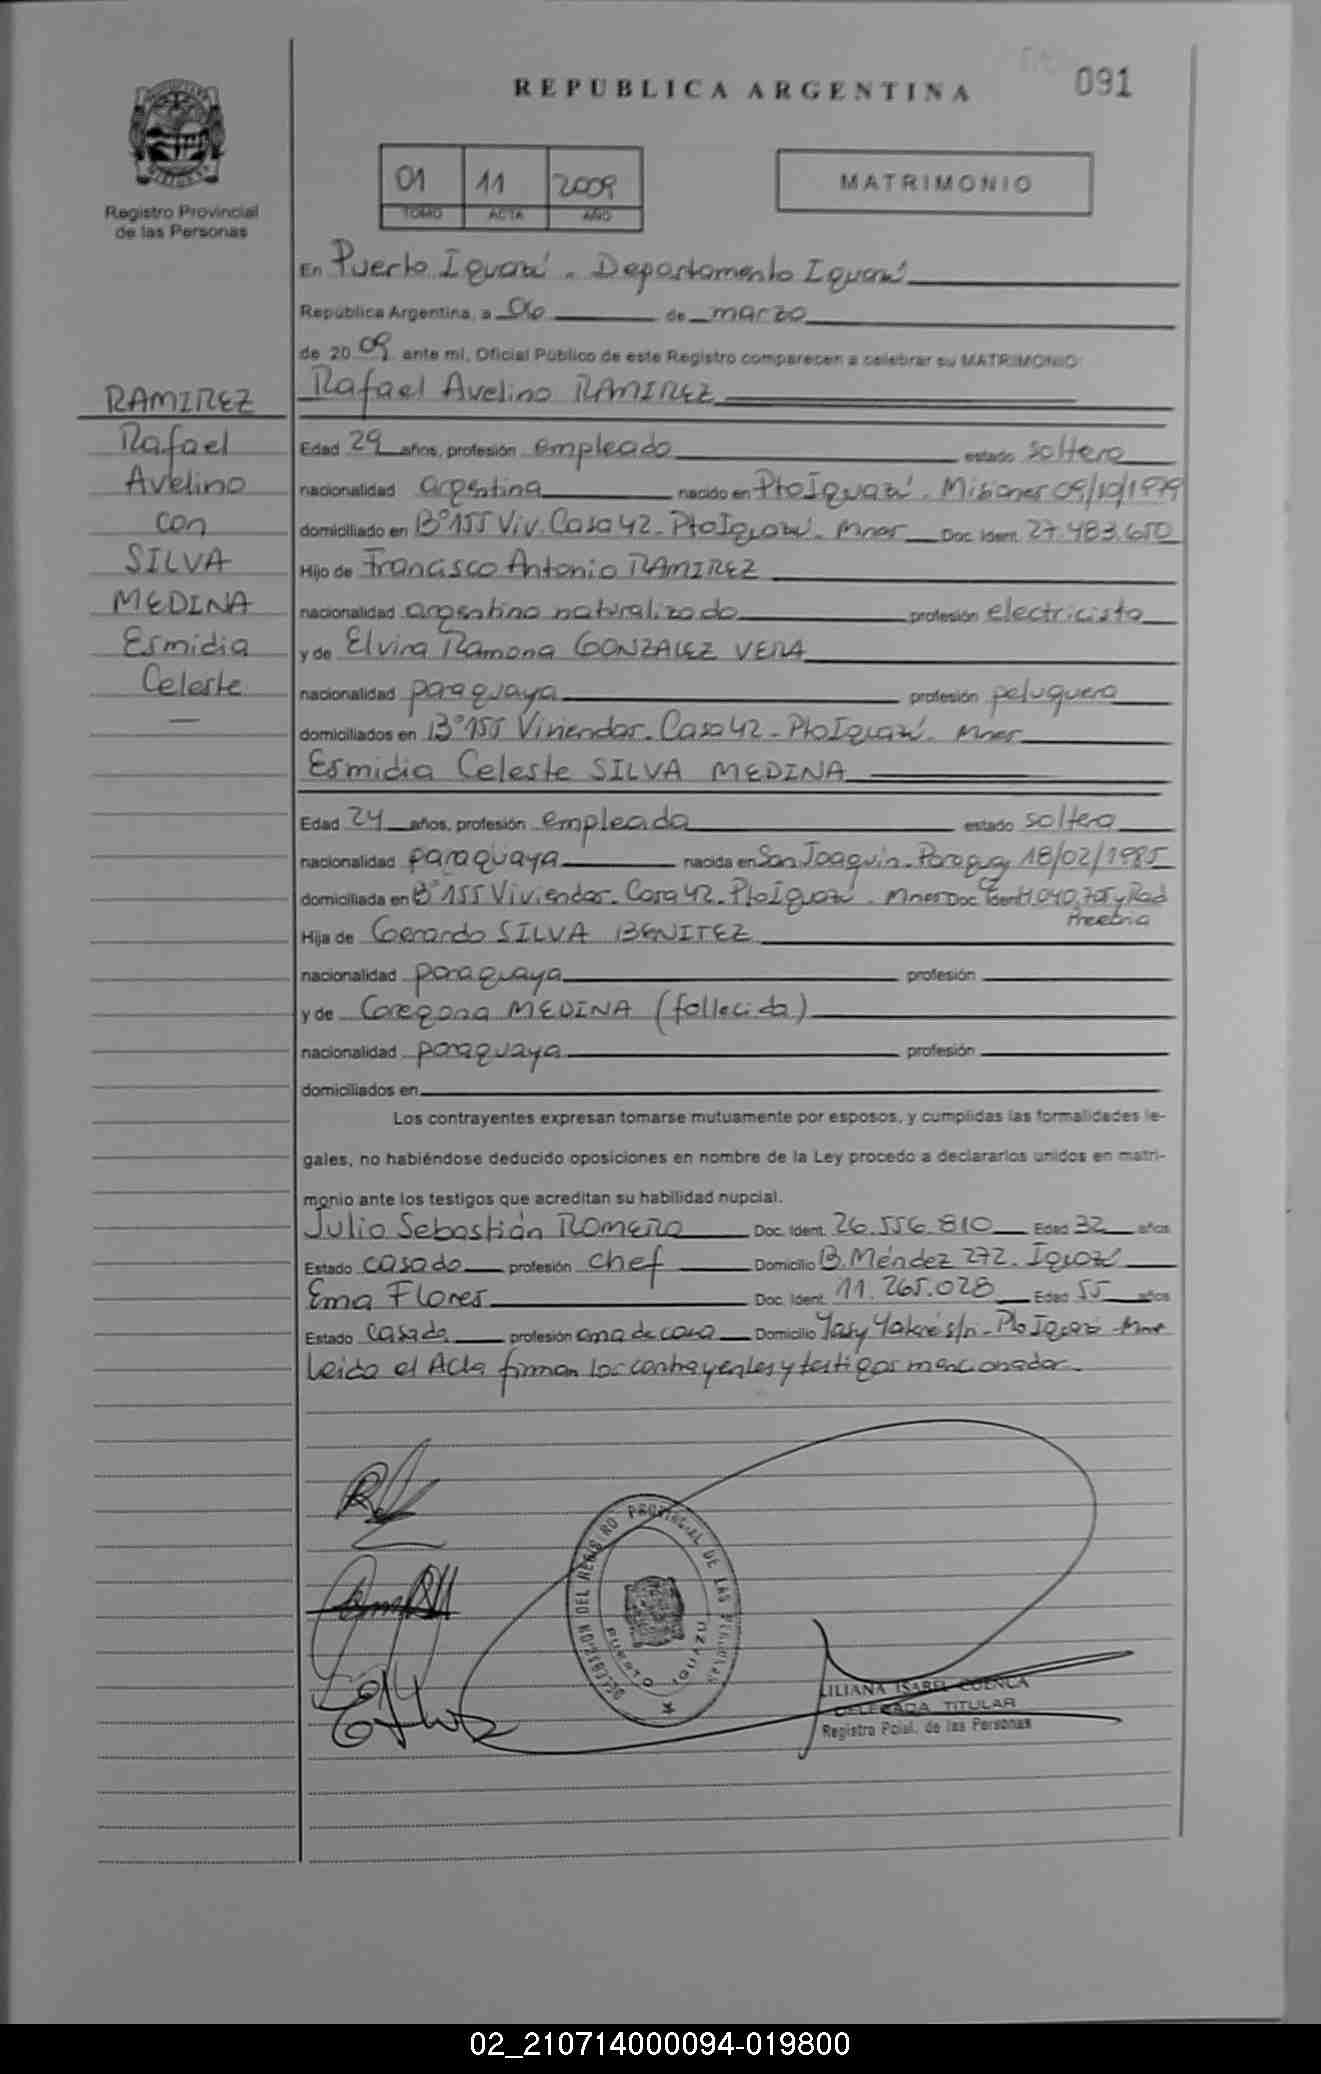 REPUBLICA ARGENTINA
091
Registro Provincial
de las Personas
01 11 2009
TOMO ACTA AÑO
MATRIMONIO
En Puerto Iguazú - Departamento Iguazú
República Argentina, a 06 de marzo
de 20 09 ante mí, Oficial Público de este Registro comparecen a celebrar su MATRIMONIO:
Rafael Avelino RAMIREZ
RAMIREZ
Rafael
Avelino
con
SILVA
MEDINA
Esmidia
Celeste
Edad 29 años, profesión empleado estado soltero
nacionalidad argentina nacido en Pto Iguazú - Misiones 09/10/1979
domiciliado en B° 155 Viv. Casa 42 - Pto Iguazú - Mnes Doc. Ident. 27.483.650
Hijo de Francisco Antonio RAMIREZ
nacionalidad argentino naturalizado profesión electricista
y de Elvira Ramona GONZALEZ VERA
nacionalidad paraguaya profesión peluquera
domiciliados en B° 155 Viviendas - Casa 42 - Pto Iguazú - Mnes
Esmidia Celeste SILVA MEDINA
Edad 24 años, profesión empleada estado soltera
nacionalidad paraguaya nacida en San Joaquín - Paraguay 18/02/1985
domiciliada en B° 155 Viviendas - Casa 42 - Pto Iguazú - Mnes Doc. Ident. 040.705 y Rad
Hija de Gerardo SILVA BENITEZ
nacionalidad paraguaya profesión
y de Gregoria MEDINA (fallecida)
nacionalidad paraguaya profesión
domiciliados en
Los contrayentes expresan tomarse mutuamente por esposos, y cumplidas las formalidades le-
gales, no habiéndose deducido oposiciones en nombre de la Ley procedo a declararlos unidos en matri-
monio ante los testigos que acreditan su habilidad nupcial.
Julio Sebastián ROMERO Doc. Ident. 26.556.810 Edad 32 años
Estado casado profesión chef Domicilio B. Méndez 272 - Iguazú
Ema Flores Doc. Ident. 11.265.028 Edad 55 años
Estado Casada profesión ama de casa Domicilio Yasy Yateré s/n - Pto Iguazú - Mnes
Leída el Acta firman los contrayentes y testigos mencionados.
DELEGACION DEL REGISTRO PROVINCIAL DE LAS PERSONAS
PUERTO IGUAZU
LILIANA ISABEL CUENCA
DELEGADA TITULAR
Registro Pcial. de las Personas
02_210714000094-019800